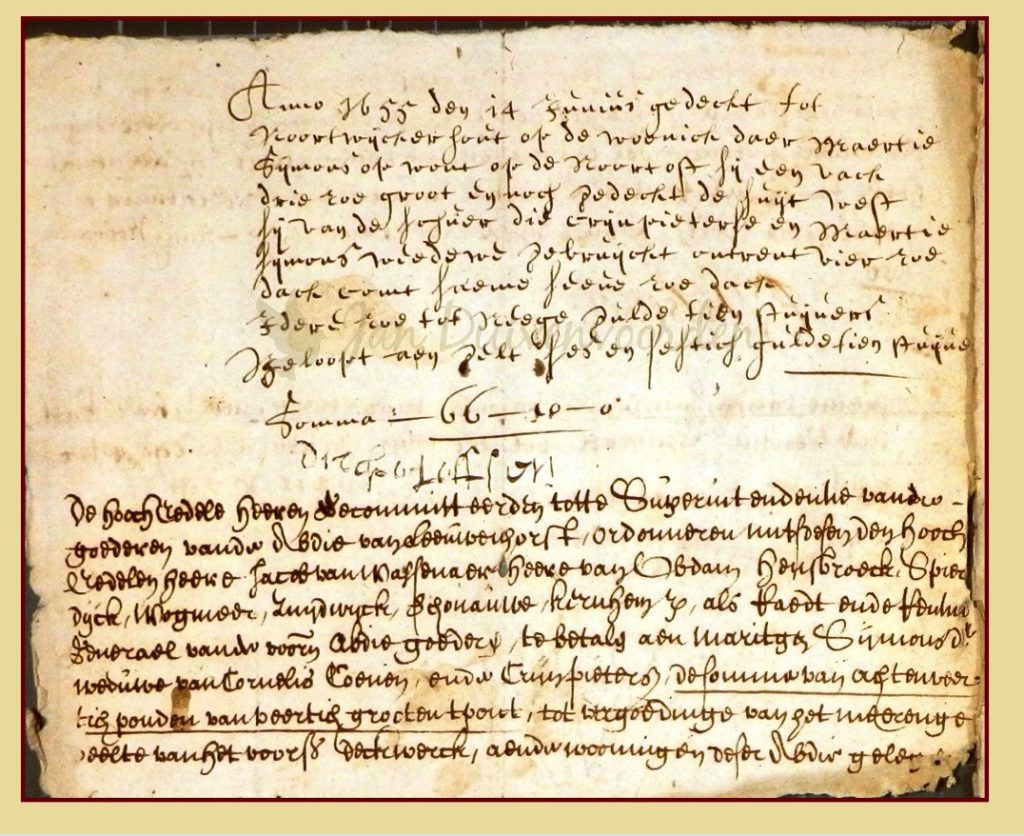 Anno 1655 den 14 Junius gedeckt tot
Noortwijckerhout op de wonick daer Maertie
Sijmons op wont op de Noortost sij een vack
drie roe groot en noch gedeckt de suijt west
sij van de schuer die Crijn pieterse en Maertie
sijmons wiedewe gebruijckt ontrent vier roe
dack comt saeme seeve roe dack
Idere roe tot neege gulde tien stuijvers
Beloopt aen gelt ses en sestich gulde tien stuijve
Somma :— 66 — 10 — 0
dirck
De hooch Eedele heeren Gecommitteerden totte Superintendentie vande
goederen vande Abdie van Leeuwenhorst, ordonneren mits desen den hooch
Eedelen heere Jacob van Wassenaer heere van Obdam Hensbroeck, Spier
dijck, Wogmeer, Zuijdwijck, Schonauwe, kernhem &, als Raedt ende Rentm
Generael vande voorn Abdie goeder, te betale aen Maritgen Sijmons dr
weduwe van Cornelis Coenen, ende Crijn pieters, de somme van achtenveer
tich ponden van veertich grooten tpont, tot vergoedinge van het meerenge
deelte van het voorss deckwerck, aende wooningen deser Abdie gelegen.
Jan Duivenvoorden